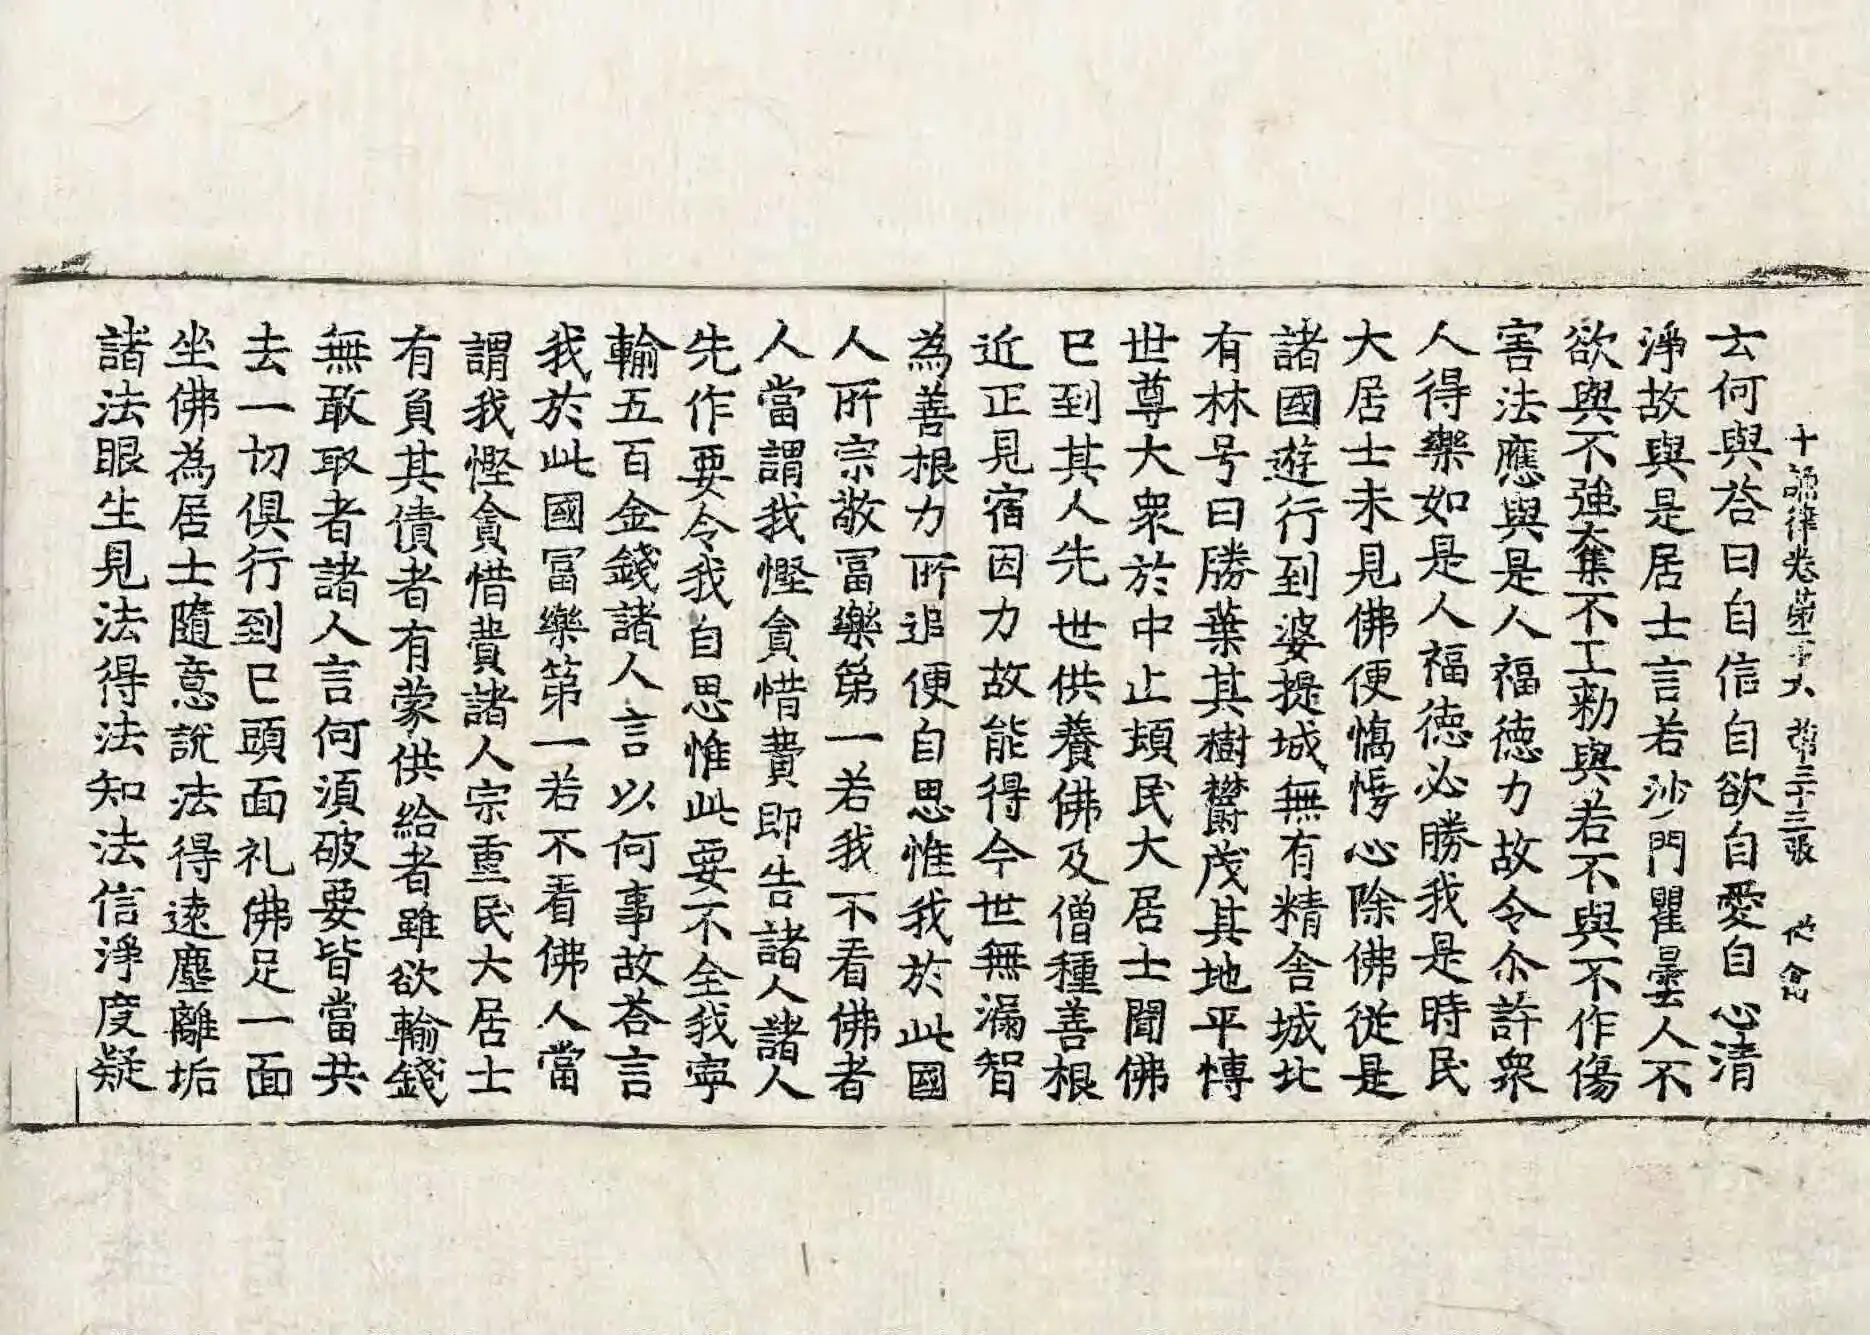 十誦律卷第二十六 第三十三張
云何與荅曰自信自欲自愛自心清
淨故與是居士言若沙門瞿曇人不
欲與不強奪不工勑與若不與不作傷
害法應與是人福德力故令尒許衆
人得樂如是人福德必勝我是時民
大居士未見佛便憍悕心除佛從是
諸國遊行到婆提城無有精舍城北
有林号曰勝葉其樹欝茂其地平博
世尊大衆於中止頓民大居士聞佛
已到其人先世供養佛及僧種善根
近正見宿因力故能得今世無漏智
為善根力所追便自思惟我於此國
人所宗敬冨樂第一若我不看佛者
人當謂我慳貪惜費即告諸人諸人
先作要令我自思惟此要不全我寧
輸五百金錢諸人言以何事故荅言
我於此國冨樂第一若不看佛人當
謂我慳貪惜費諸人宗重民大居士
有負其債者有蒙供給者雖欲輸錢
無敢取者諸人言何湏破要皆當共
去一切俱行到已頭面礼佛足一面
坐佛為居士隨意說法得遠塵離垢
諸法眼生見法得法知法信淨度疑